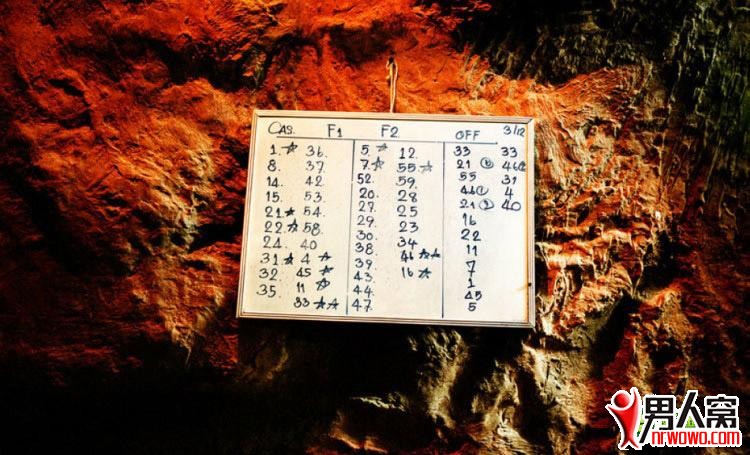 CAS. F1 F2 OFF 3/12
1. ☆ 36. 5. ☆ 12. 33 33
8. 37. 7. ☆ 55. ☆ 21
14. 42 52. 59. 55 31
15. 53. 20. 28 4
21 ☆ 54. 27. 25 21 ② 40
22. ☆ 58. 29. 23 16
24. 40 30. 34 22
31 ☆ 4 ☆ 38. 46 ☆☆ 11
32. 45 ☆ 39. 16 ☆ 7
35. 11 ☆ 43. 1
33 ☆☆ 44. 45
47. 5
男人窝
nrwowo.com